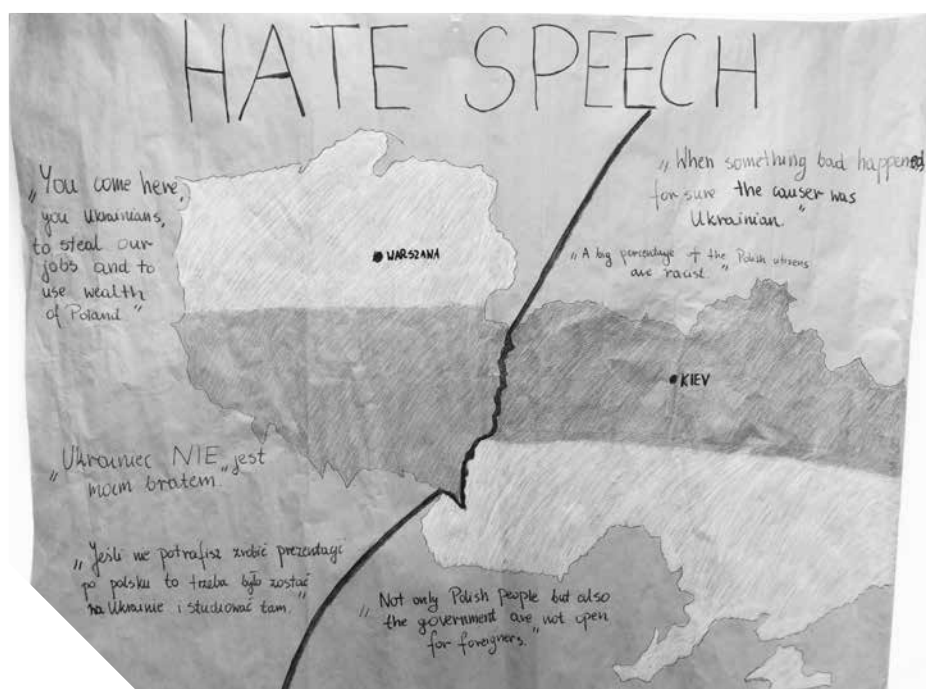 HATE SPEECH
„You come here,
you Ukrainians,
to steal our
jobs and to
use wealth
of Poland"
„When something bad happened,
for sure the causer was
Ukrainian."
„A big percentage of the Polish citizens
are racist."
WARSZAWA
KIEV
„Ukrainiec NIE „jest
moim bratem."
„Jeśli nie potrafisz zrobić prezentacji
po polsku to trzeba było zostać
na Ukrainie i studiować tam."
„Not only Polish people but also
the government are not open
for foreigners."